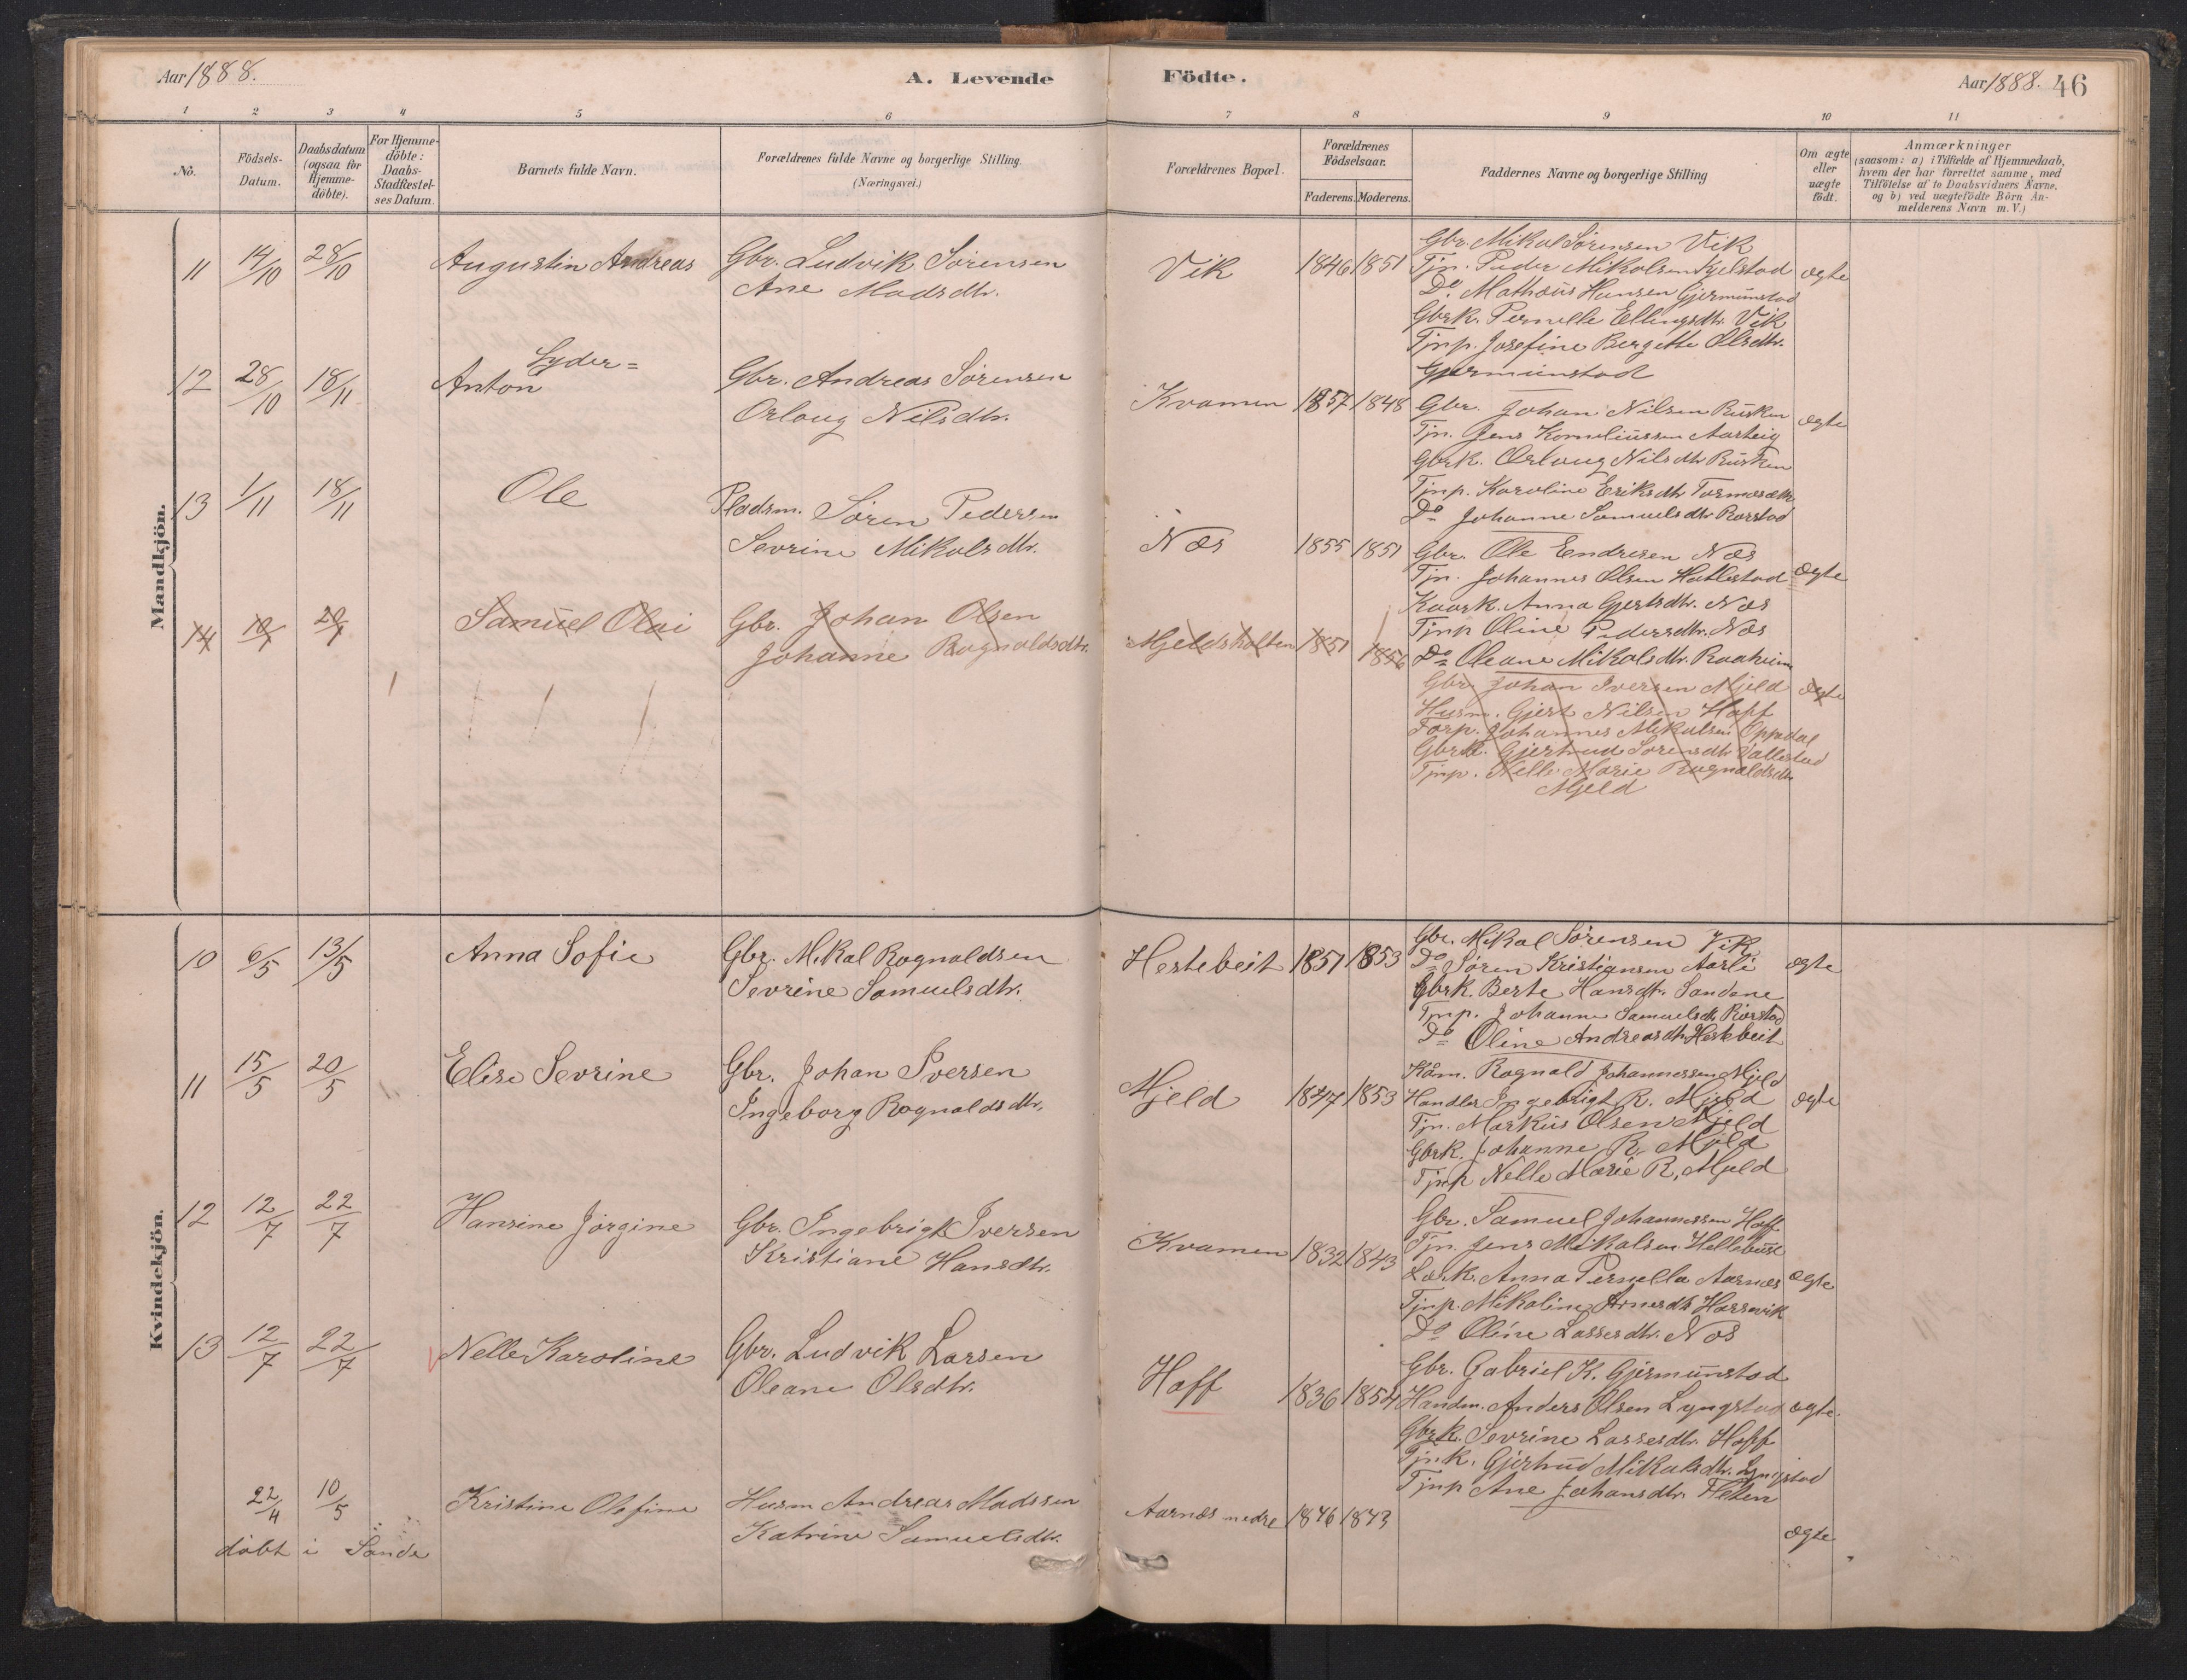 Aar 1888.
A. Levende
Födte.
Aar 1888. 46
1 2 3 4 5 6 7 8 9 10 11
No.
Födsels-
Datum.
Daabsdatum
(ogsaa for
Hjemme-
döbte).
For Hjemme-
döbte:
Daabs-
Stadfæstel-
ses Datum.
Barnets fulde Navn.
Forældrenes fulde Navne og borgerlige Stilling.
(Næringsvei.)
Forældrenes Bopæl.
Forældrenes
Födselsaar.
Faderens. Moderens.
Faddernes Navne og borgerlige Stilling
Om ægte
eller
uægte
födt.
Anmærkninger
(saasom: a) i Tilfælde af Hjemmedaab,
hvem der har forrettet samme, med
Tilföielse af to Daabsvidners Navne,
og b) ved uægtefödte Börn An-
melderens Navn m. V.)
Mandkjön.
11 14/10 28/10 Augustin Andreas
Gbr. Ludvik Sörensen
Ane Madsdtr.
Vik 1846 1851
Gbr. Mikal Sörensen Vik
Tjn. Peder Mikalsen Kjelstad
Do. Mathæus Hansen Gjermunstad
Gbrk. Pernelle Ellingsdtr. Vik
Tjnp. Josefine Bergette Olsdtr.
Gjermunstad
ægte
12 28/10 18/11 Lyder=
Anton
Gbr. Andreas Sörensen
Orloug Nilsdtr.
Kvamen 1857 1848
Gbr. Johan Nilsen Rusken
Tjn. Jens Korneliussen
Gbrk. Orloug Nilsdtr Rusken
Tjnp. Karoline Eriksdtr
Do Johanne Samuelsdtr Rorstad
ægte
13 1/11 18/11 Ole
Pladsm. Sören Pedersen
Sevrine Mikalsdtr.
Næs 1855 1851
Gbr. Ole Endresen Næs
Tjn. Johannes Olsen Hatlestad
Kaark. Anna Gjertsdtr. Næs
Tjnp Oline Pedersdtr. Næs
Do Oleane Mikalsdtr. Raaheim
ægte
14 10/7 29/7 Samuel Olai
Gbr. Johan Olsen
Johanne Rognaldsdtr.
Mjeldsholten 1851 1856
Gbr. Johan Iversen Mjeld
Husm. Gjert Nilsen Hoff
Forp. Johannes Mikalsen Oppedal
Gbrk. Gjertrud Sörensdtr Vallestad
Tjnp. Nelle Marie Rognaldsdtr
Mjeld
ægte
Kvindekjön.
10 6/5 13/5 Anna Sofie
Gbr. Mikal Rognaldsen
Sevrine Samuelsdtr.
Hestebeit 1851 1853
Gbr. Mikal Sörensen Vik
Do Sören Kristiansen Aarli
Gbrk. Berte Hansdtr. Sandene
Tjnp. Johanne Samuelsdtr Rorstad
Do Oline Andreasdtr Hestebeit
ægte
11 15/5 20/5 Elise Sevrine
Gbr. Johan Iversen
Ingeborg Rognaldsdtr.
Mjeld 1847 1853
Kårm. Rognald Johannessen Mjeld
Handler Ingebrigt R. Mjeld
Tjn. Markus Olsen Mjeld
Gbrk. Johanne R. Mjeld
Tjnp Nelle Marie R. Mjeld
ægte
12 12/7 22/7 Hansine Jörgine
Gbr. Ingebrigt Iversen
Kristiane Hansdtr.
Kvamen 1832 1843
Gbr. Samuel Johannessen Hoff
Tjn. Jens Mikalsen Hellebust
Lærk. Anna Pernella Aarnes
Tjnp. Mikaline Arnesdtr
Do Oline Lassesdtr. Næs
ægte
13 12/7 22/7 Nelle Karoline
Gbr. Ludvik Larsen
Oleane Olsdtr.
Hoff 1836 1854
Gbr. Gabriel K. Gjermunstad
Handm. Anders Olsen Lyngstad
Gbrk. Sevrine Lassesdtr. Hoff
Tjnk. Gjertrud Mikalsdtr. Lyngstad
Tjnp Ane Johansdtr. Fleten
ægte.
22/4 10/5 Kristine Olefine
döbt i Sande
Husm Andreas Madssen
Katrine Samuelsdtr.
Aarnæs nedre 1846 1843
ægte